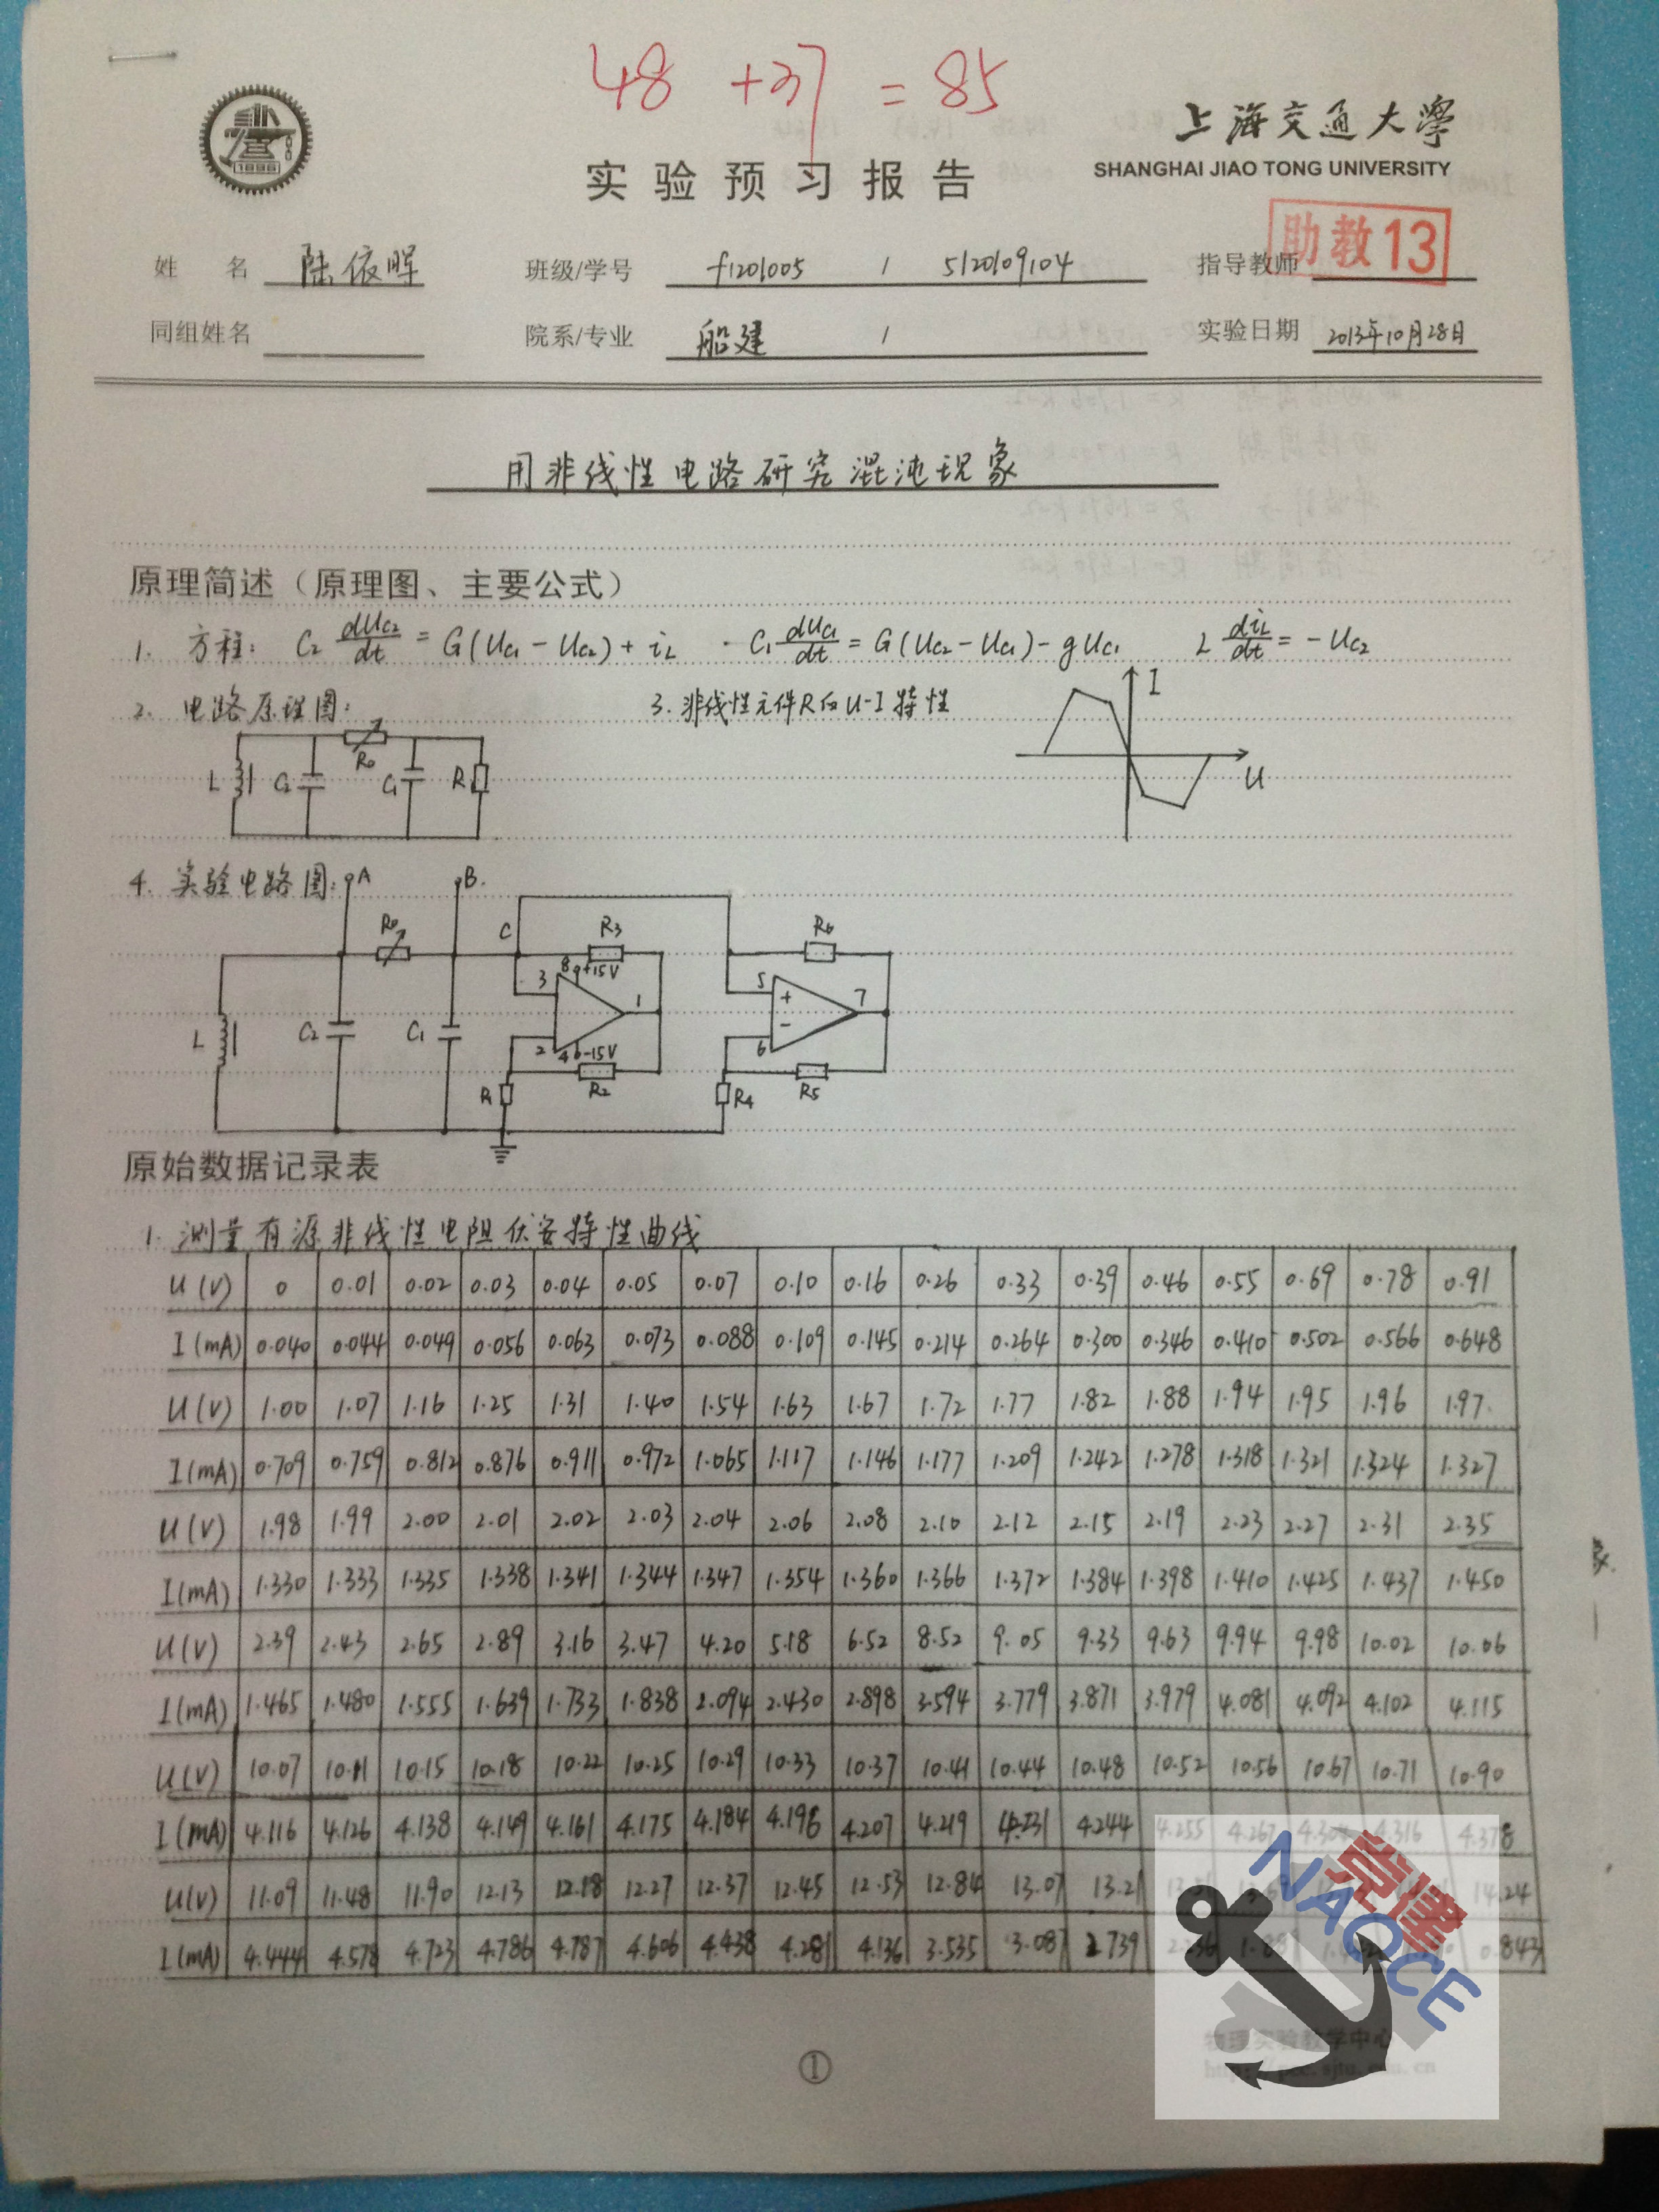 48 +37 = 85
上海交通大學
SHANGHAI JIAO TONG UNIVERSITY
1896
实验预习报告
助教13
姓 名 陆依晖 班级/学号 f1201005 / 5120109104 指导教师
同组姓名 院系/专业 船建 / 实验日期 2013年10月28日
用非线性电路研究混沌现象
原理简述（原理图、主要公式）
1. 方程: C2 dUc2/dt = G(Uc1 - Uc2) + iL · C1 dUc1/dt = G(Uc2 - Uc1) - gUc1 L diL/dt = -Uc2
2. 电路原理图: 3. 非线性元件R的U-I特性
I
U
R0
L C2 C1 R
4. 实验电路图: A B.
R0 C R3 R6
3 8 9+15V 1 5 + 7
L C2 C1 - 
2 4 b-15V 6
R1 R2 R4 R5
原始数据记录表
1. 测量有源非线性电阻伏安特性曲线
U(V) 0 0.01 0.02 0.03 0.04 0.05 0.07 0.10 0.16 0.26 0.33 0.39 0.46 0.55 0.69 0.78 0.91
I(mA) 0.040 0.044 0.049 0.056 0.063 0.073 0.088 0.109 0.145 0.214 0.264 0.300 0.346 0.410 0.502 0.566 0.648
U(V) 1.00 1.07 1.16 1.25 1.31 1.40 1.54 1.63 1.67 1.72 1.77 1.82 1.88 1.94 1.95 1.96 1.97
I(mA) 0.709 0.759 0.812 0.876 0.911 0.972 1.065 1.117 1.146 1.177 1.209 1.242 1.278 1.318 1.321 1.324 1.327
U(V) 1.98 1.99 2.00 2.01 2.02 2.03 2.04 2.06 2.08 2.10 2.12 2.15 2.19 2.23 2.27 2.31 2.35
I(mA) 1.330 1.333 1.335 1.338 1.341 1.344 1.347 1.354 1.360 1.366 1.372 1.384 1.398 1.410 1.425 1.437 1.450
U(V) 2.39 2.43 2.65 2.89 3.16 3.47 4.20 5.18 6.52 8.52 9.05 9.33 9.63 9.94 9.98 10.02 10.06
I(mA) 1.465 1.480 1.555 1.639 1.733 1.838 2.094 2.430 2.898 3.594 3.779 3.871 3.979 4.081 4.092 4.102 4.115
U(V) 10.07 10.11 10.15 10.18 10.22 10.25 10.29 10.33 10.37 10.41 10.44 10.48 10.52 10.56 10.67 10.71 10.90
I(mA) 4.116 4.126 4.138 4.149 4.161 4.175 4.184 4.196 4.207 4.219 4.231 4.244 4.255 4.267 4.316 4.378
U(V) 11.09 11.48 11.90 12.13 12.18 12.27 12.37 12.45 12.53 12.84 13.07 13.21 14.24
I(mA) 4.444 4.578 4.723 4.786 4.787 4.606 4.438 4.281 4.136 3.535 3.087 2.739 0.843
党建
NAOCE
物理实验教学中心
①